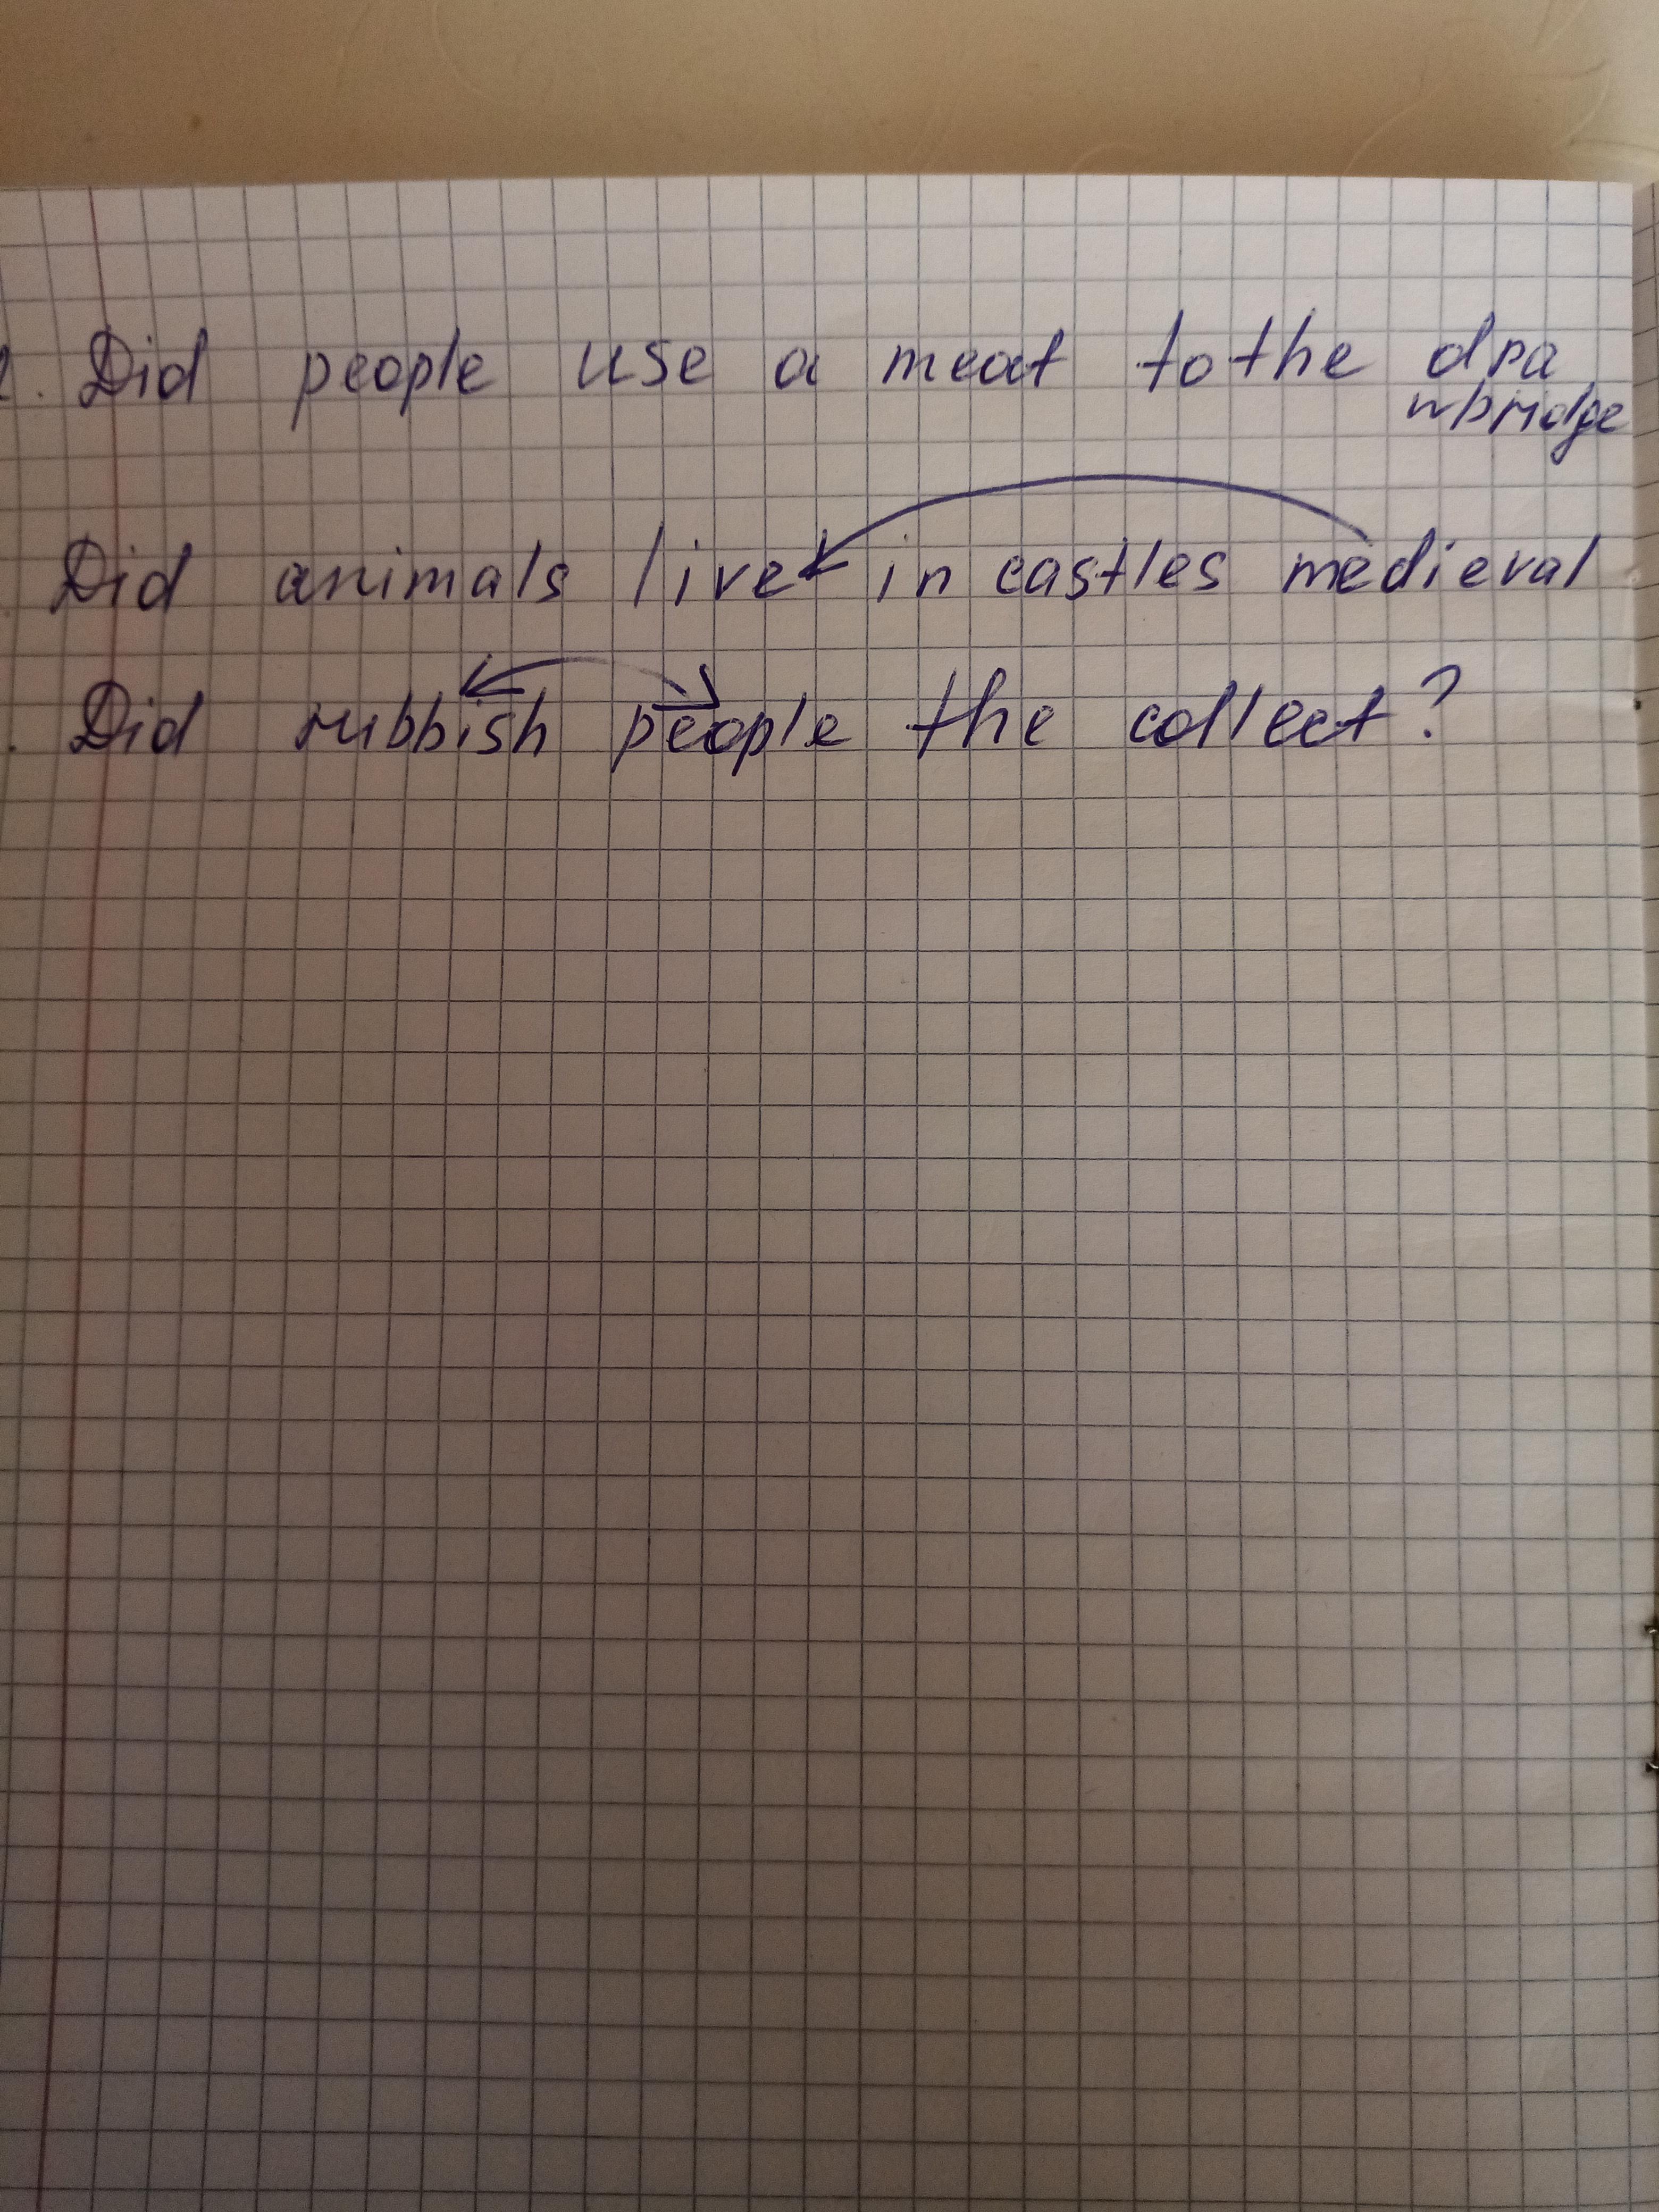 . Did people use a meat to the dra
wbridge
Did animals live in castles medieval
. Did rubbish people the collect?